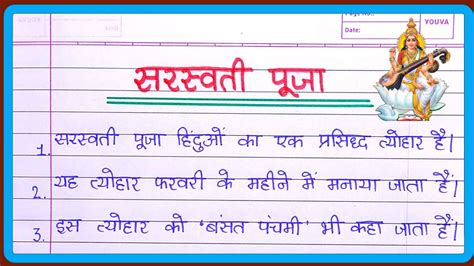 Page No.:
Date:
YOUVA
सरस्वती पूजा
1. सरस्वती पूजा हिंदुओं का एक प्रसिद्ध त्योहार है।
2. यह त्योहार फरवरी के महीने में मनाया जाता है।
3. इस त्योहार को 'बंसत पंचमी' भी कहा जाता हैं।